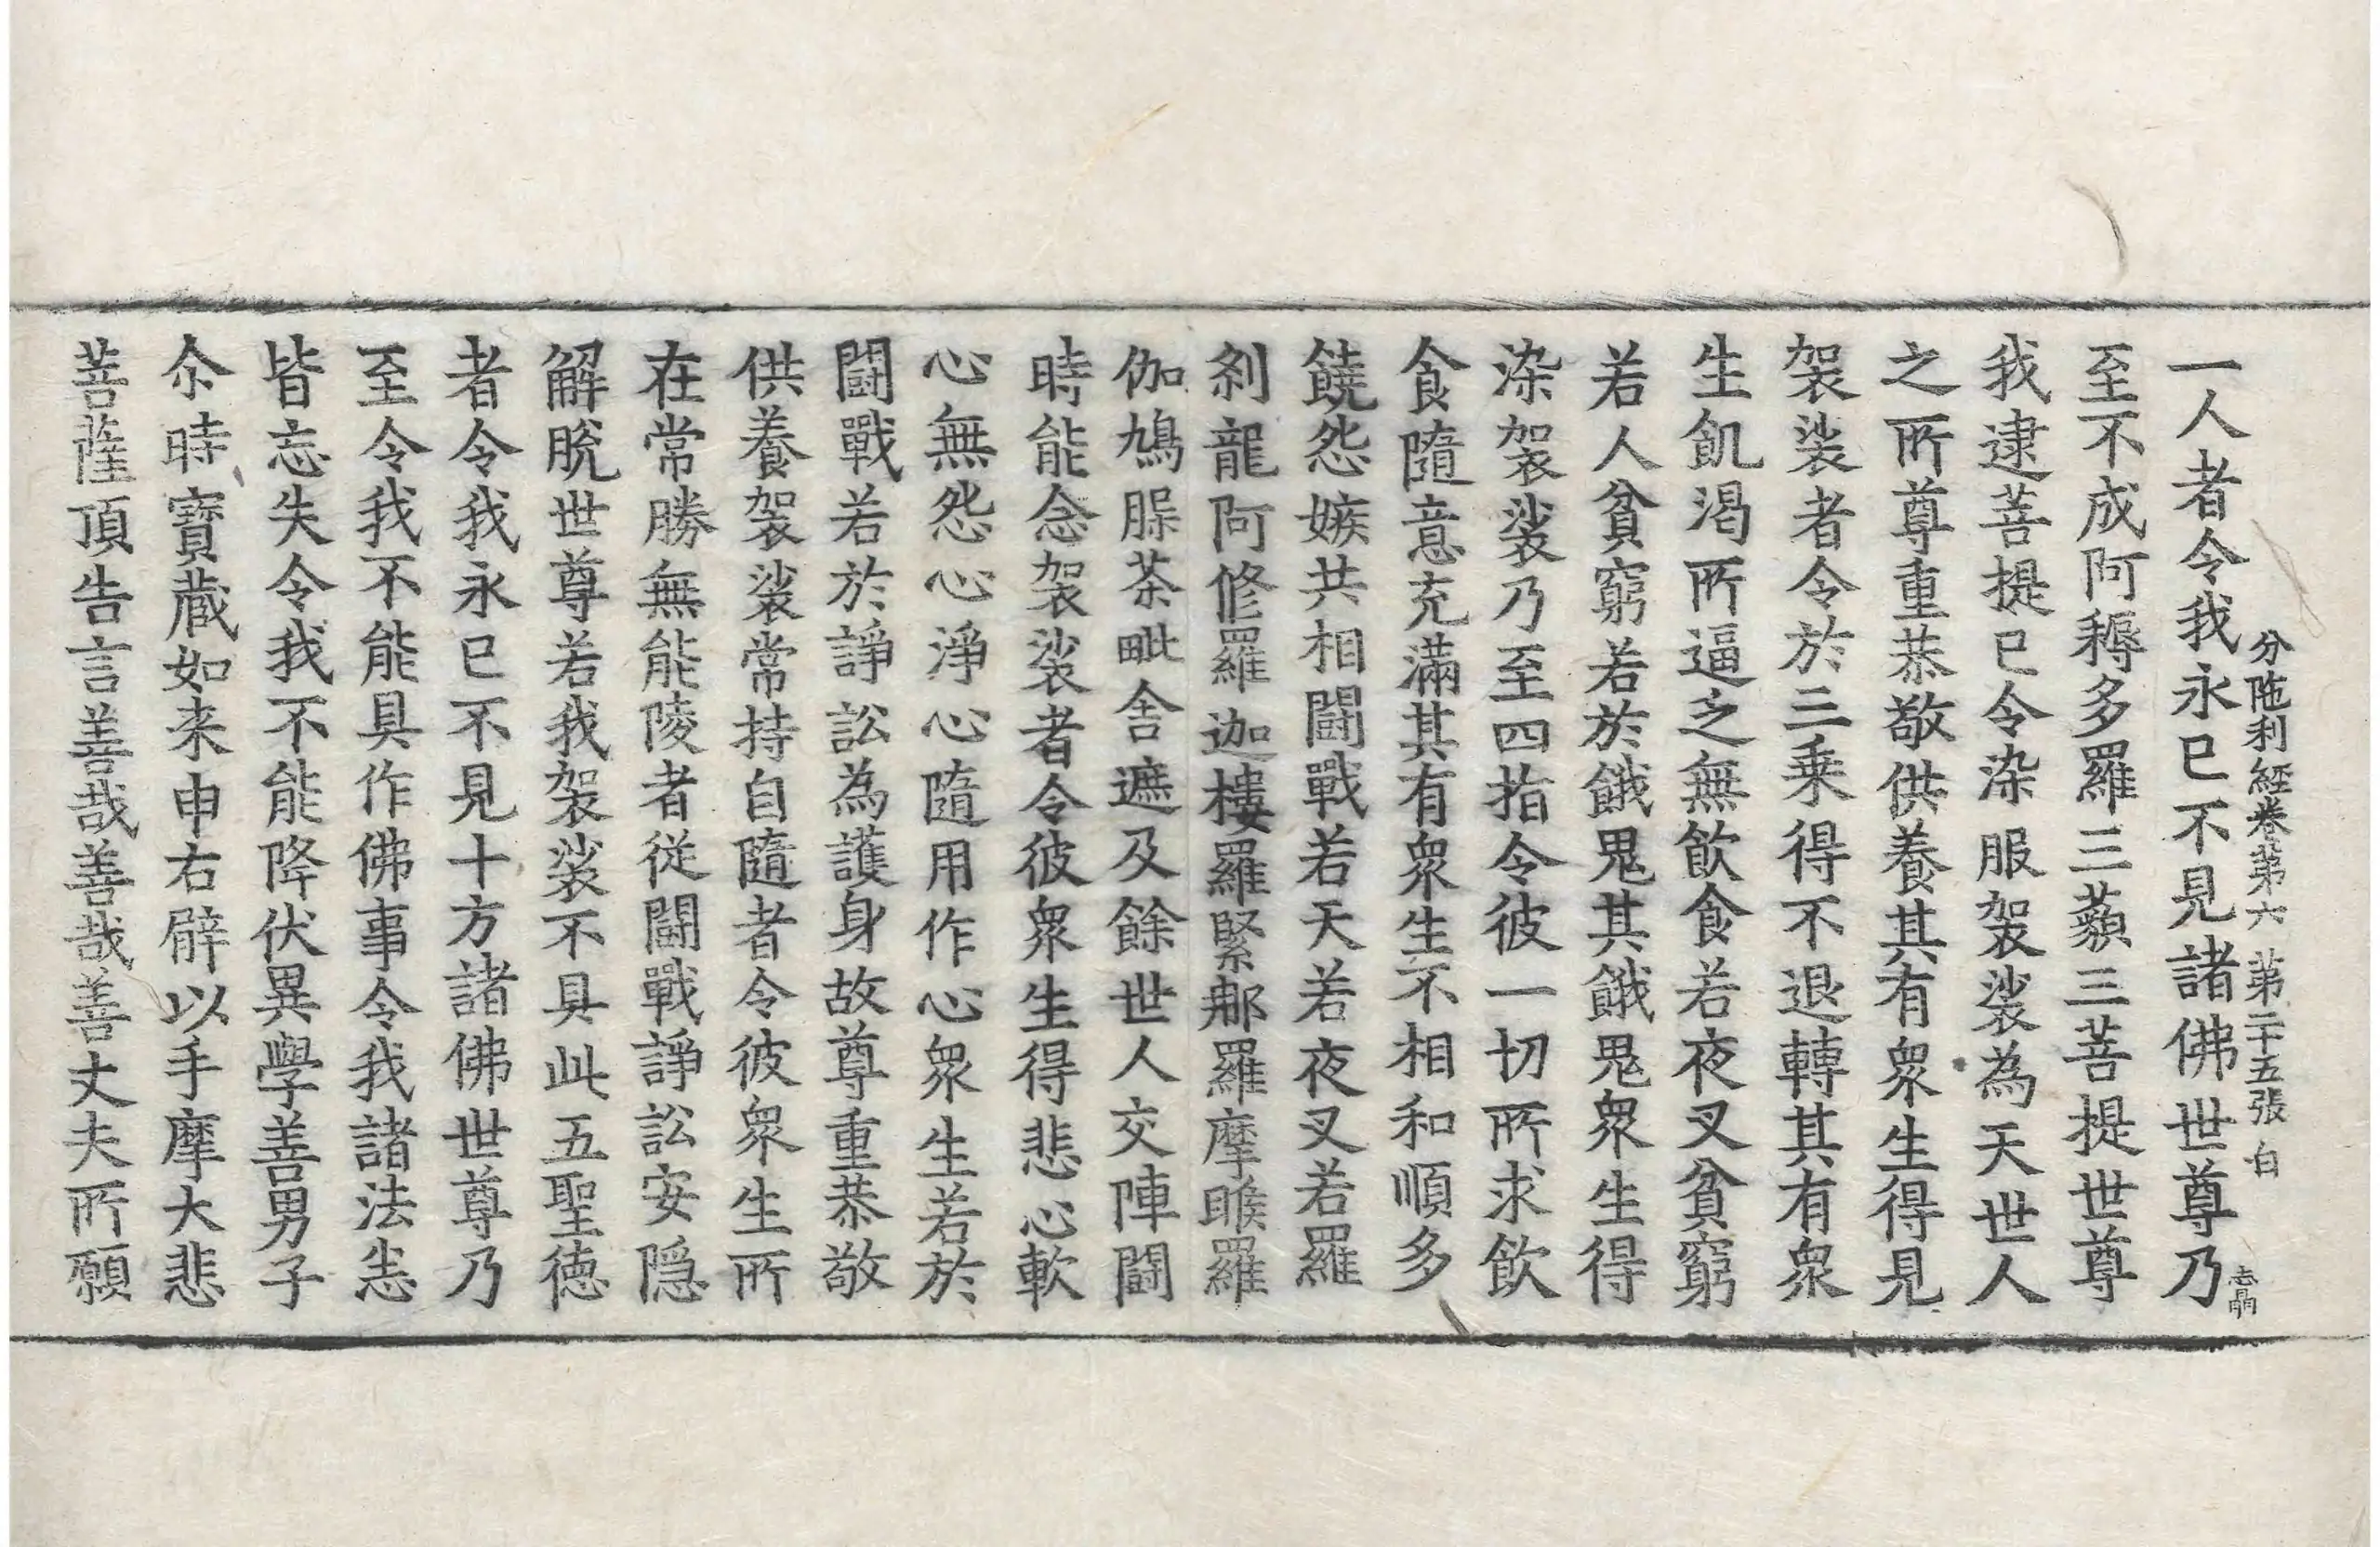 分陁利經卷第六　第二十五張　白
一人者令我永已不見諸佛世尊乃
至不成阿耨多羅三藐三菩提世尊
我逮菩提已令染服袈裟為天世人
之所尊重恭敬供養其有衆生得見
袈裟者令於三乗得不退轉其有衆
生飢渴所逼乏無飲食若夜叉貧窮
若人貧窮若於餓鬼其餓鬼衆生得
染袈裟乃至四指令彼一切所求飲
食隨意充滿其有衆生不相和順多
饒怨嫉共相闘戰若天若夜叉若羅
刹龍阿修羅迦樓羅緊那羅摩睺羅
伽鳩腂茶毗舍遮及餘世人交陣闘
時能念袈裟者令彼衆生得悲心軟
心無怨心淨心隨用作心衆生若於
闘戰若於諍訟為護身故尊重恭敬
供養袈裟常持自隨者令彼衆生所
在常勝無能陵者從闘戰諍訟安隠
解脫世尊若我袈裟不具此五聖徳
者令我永已不見十方諸佛世尊乃
至令我不能具作佛事令我諸法恙
皆忘失令我不能降伏異學善男子
尒時寶蔵如来申右臂以手摩大悲
菩薩頂告言善哉善哉善丈夫所願